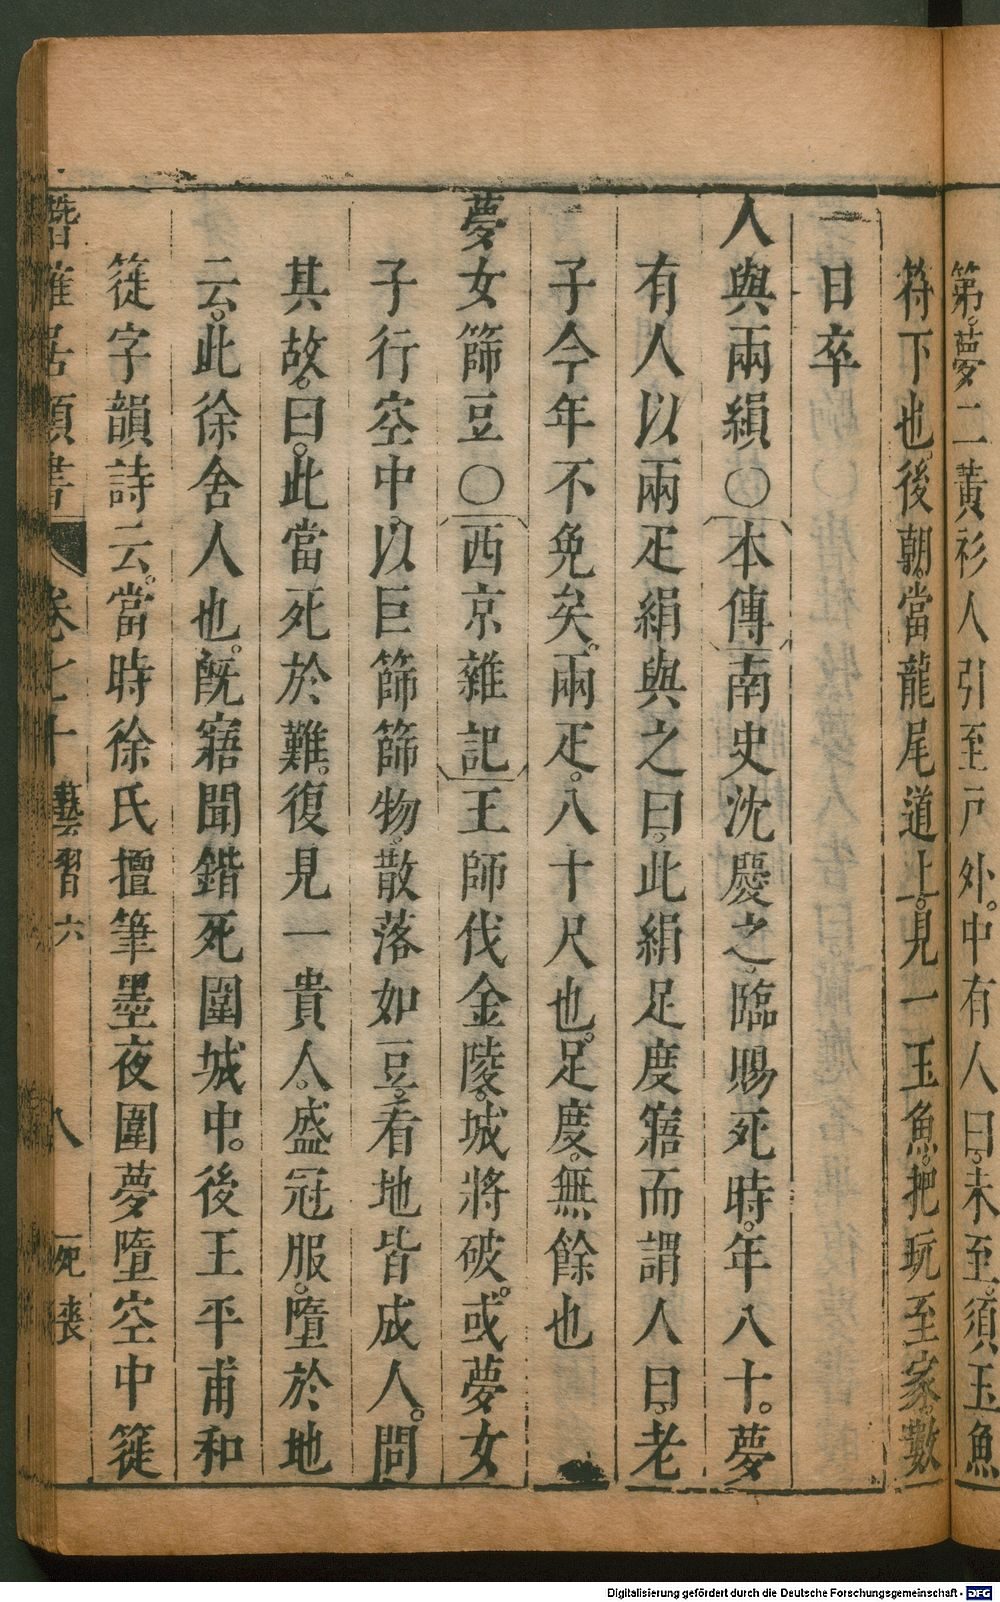 第。夢二黃衫人引至戸外。中有人曰。未至。須玉魚
符下也。後朝。當龍尾道上。見一玉魚。把玩至家。數
一日卒
人與兩絹○本傳南史沈慶之。臨賜死時。年八十。夢
有人以兩疋絹與之曰。此絹足度寤而謂人曰。老
子今年不免矣。兩疋。八十尺也。足度。無餘也
夢女篩豆○西京雜記王師伐金陵。城將破。或夢女
子行空中。以巨篩篩物。散落如豆。看地皆成人。問
其故。曰。此當死於難。復見一貴人。盛冠服。墮於地
云。此徐舍人也。旣寤聞鍇死圍城中。後王平甫和
簁字韻詩云。當時徐氏擅筆墨夜圍夢墮空中簁
卷七十 藝習六 八 死喪
Digitalisierung gefördert durch die Deutsche Forschungsgemeinschaft - DFG